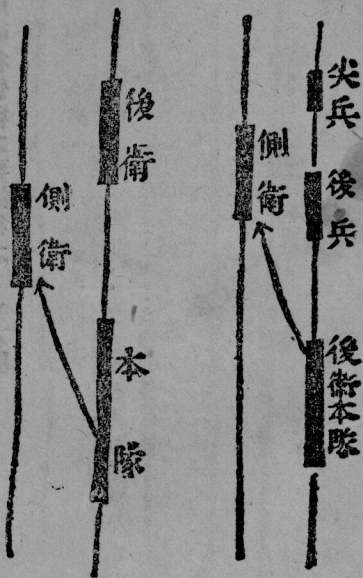 尖兵
後兵
後衛本隊
側衛
後衛
本隊
側衛